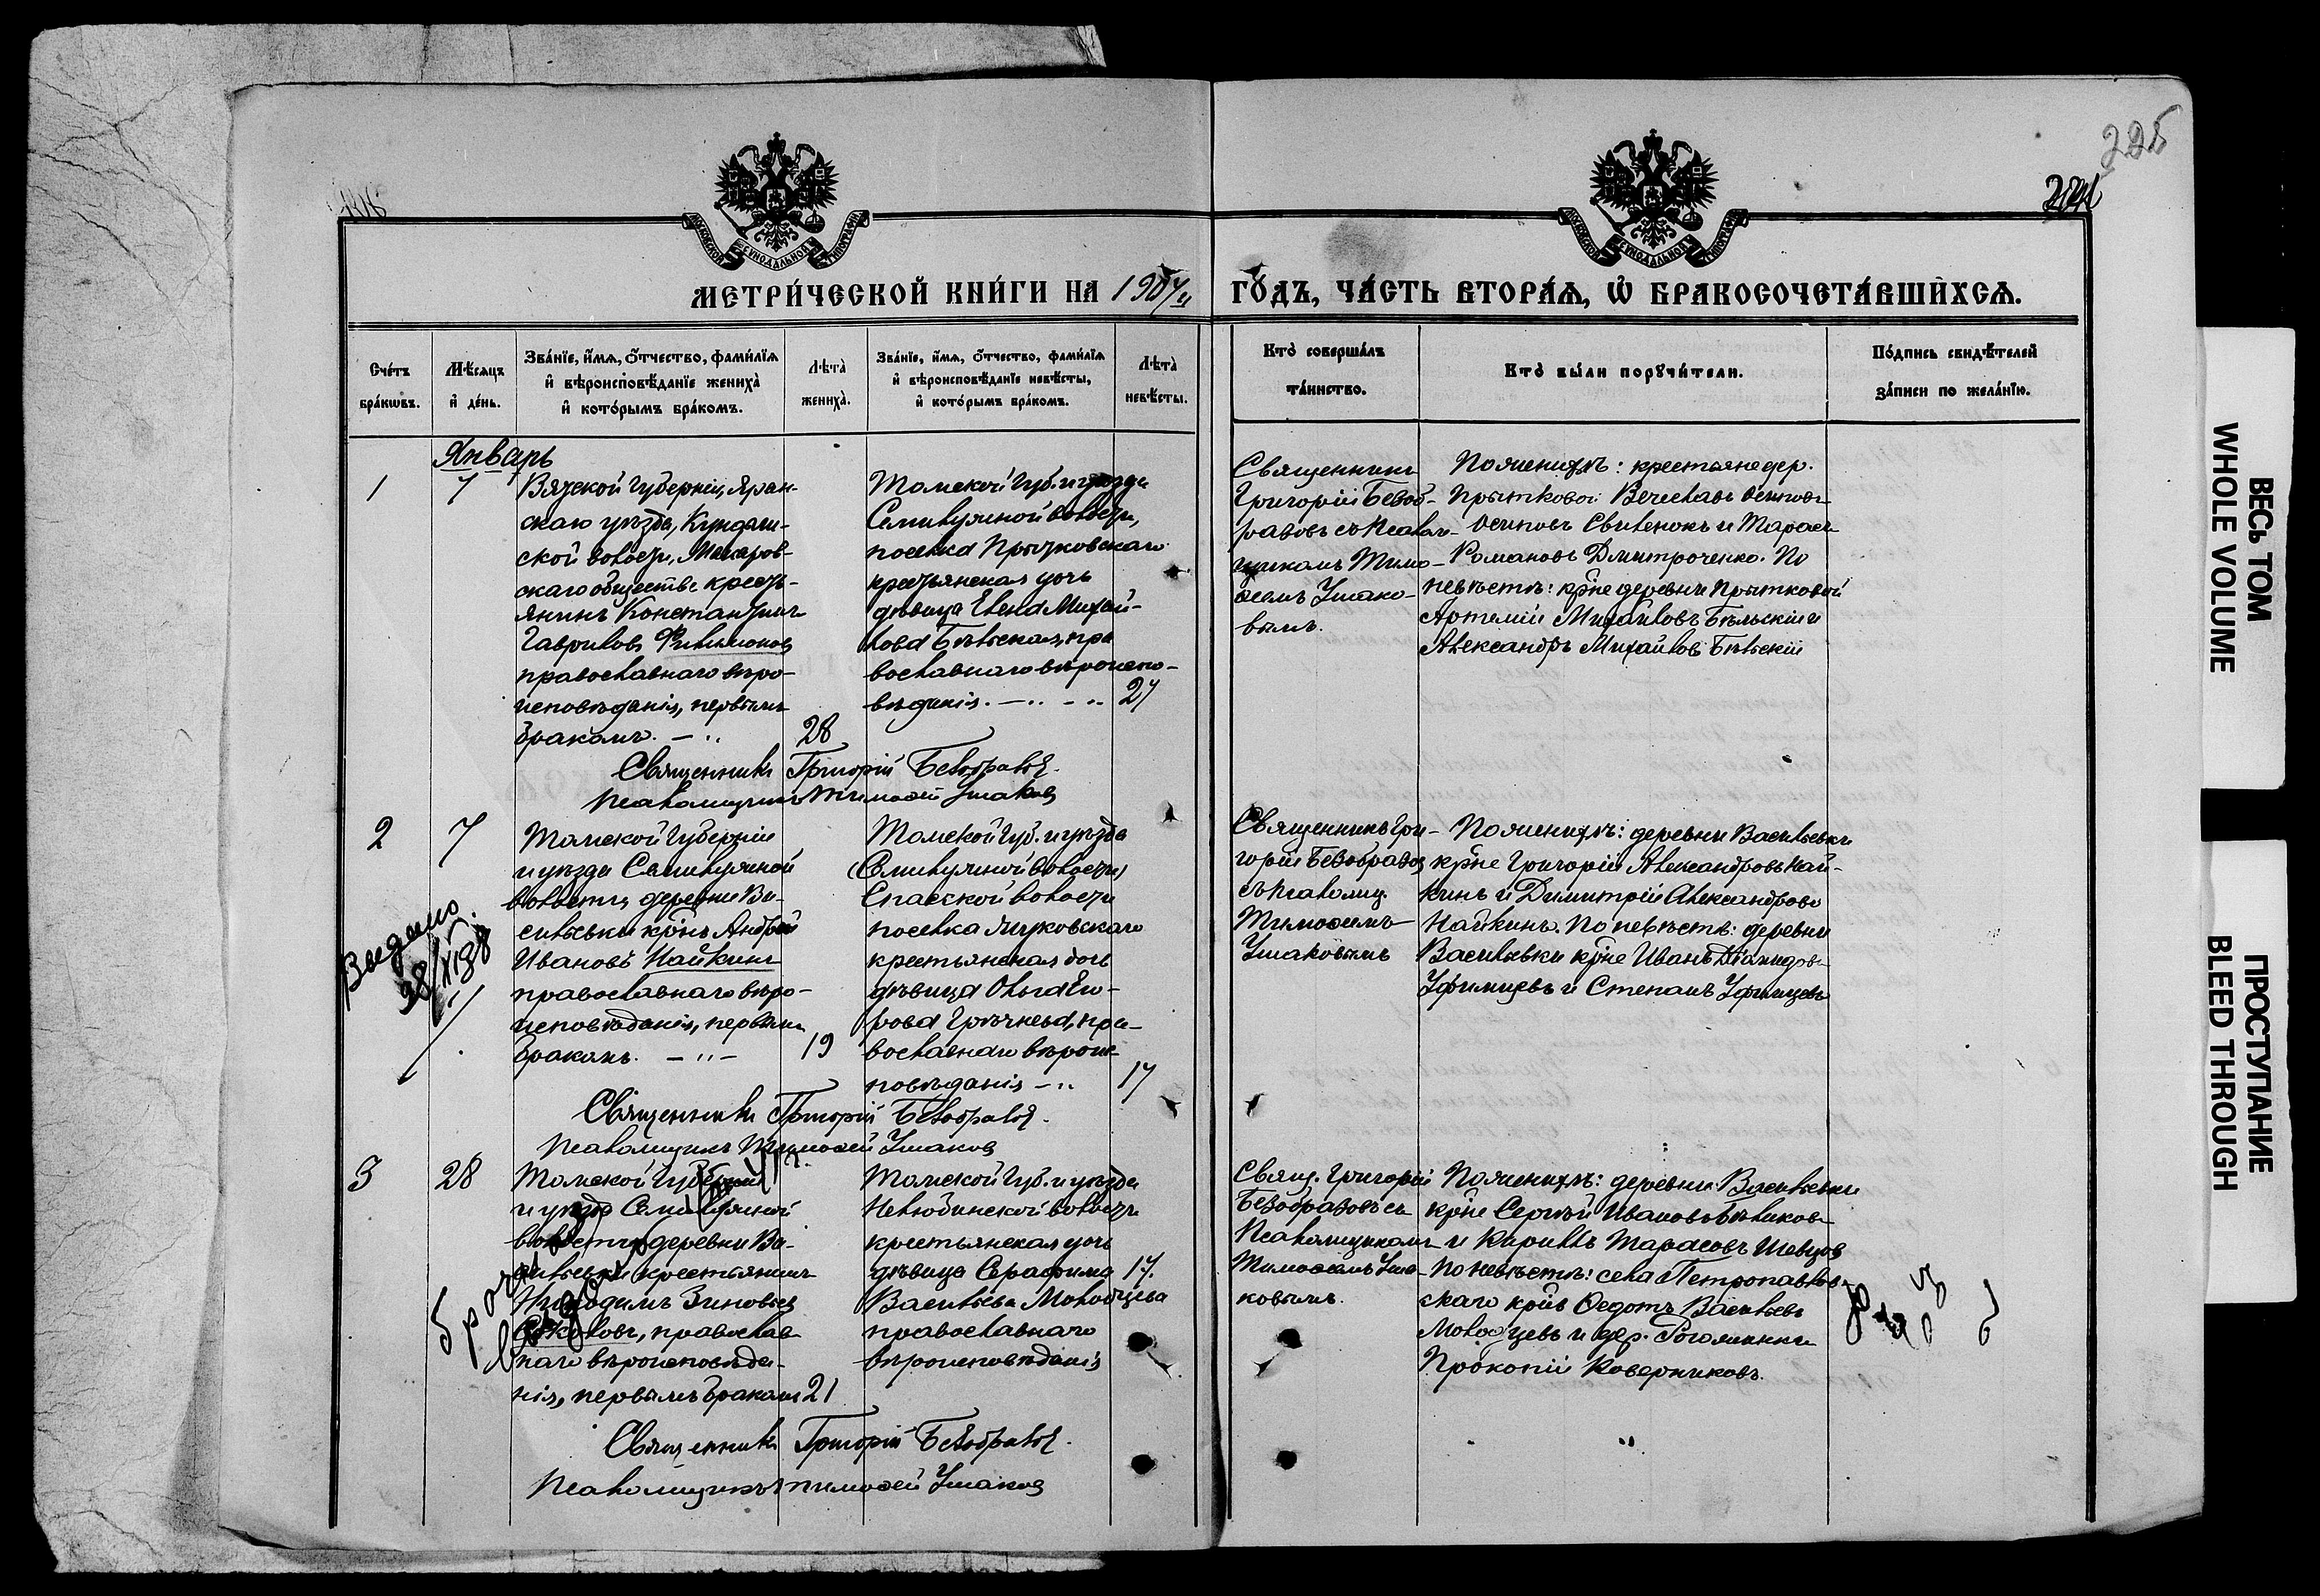 225
МОСКОВСКОЙ СѴНОДАЛЬНОЙ ТИПОГРАФІИ
МОСКОВСКОЙ СѴНОДАЛЬНОЙ ТИПОГРАФІИ
МЕТРИ́ЧЕСКОЙ КНИ́ГИ НА 1907 ГО́ДЪ, ЧА́СТЬ ВТОРА́Ѧ, Ѡ҆ БРАКОСОЧЕТА́ВШИХСѦ.
Сче́тъ бра́кѡвъ.
Мѣ́сяцъ и҆ де́нь.
Зва́нїе, и҆́мѧ, ѻ҆́тчество, фами́лїѧ и҆ вѣроисповѣ́данїе жениха̀ и҆ кото́рымъ бра́комъ.
Лѣта̀ жениха̀.
Зва́нїе, и҆́мѧ, ѻ҆́тчество, фами́лїѧ и҆ вѣроисповѣ́данїе невѣ́сты, и҆ кото́рымъ бра́комъ.
Лѣта̀ невѣ́сты.
Кто̀ соверша́лъ та́инство.
Кто̀ бы́ли порꙋчи́тели.
По́дпись свидѣ́телей за́писи по жела́нїю.
Январь
1
7
Вятской Губерніи, Яран-
скаго уѣзда,
ской волости, Макаров-
скаго общества кресть-
янинъ Константинъ
Гавриловъ Филимоновъ
православнаго вѣро-
исповѣданія, первымъ
бракомъ. — „
28
Томской Губ. и уѣзда
Семилужной волости,
поселка Прытковскаго
крестьянская дочь
дѣвица Елена Михай-
лова Бѣльская, пра
вославнаго вѣроиспо-
вѣданія. — „ - „
27
Священникъ
Григорій Безоб-
разовъ съ Псалом-
щикомъ Тимо-
ѳеемъ Ушако-
вымъ.
По женихѣ: крестьяне дер.
Прытковой Вячеславъ Осиповъ
Осиповъ Свиленокъ и Тарасъ
Романовъ Дмитроченко. По
невѣстѣ: кр̃не деревни Прытковой
Артемій Михайловъ Бѣльскій и
Александръ Михайловъ Бѣльскій
Священникъ Григорій Безобразовъ.
Псаломщикъ Тимоѳей Ушаковъ
2
7
Томской Губерніи
и уѣзда Семилужной
волости, деревни Ва-
сильевки кр̃нъ Андрей
Ивановъ Найкинъ
православнаго вѣро-
исповѣданія, первымъ
бракомъ. — „ —
19
Томской Губ. и уѣзда
(Семилужной волости)
Спасской волости
поселка Лучковскаго
крестьянская дочь
дѣвица Ольга Его-
рова Грѣчнева, пра-
вославнаго вѣроис-
повѣданія — „
17
Священникъ Гри-
горій Безобразовъ
съ псаломщ.
Тимоѳеемъ
Ушаковымъ
По женихѣ: деревни Васильевки
кр̃не Григорій Александровъ Най-
кинъ и Димитрій Александровъ
Найкинъ. По невѣстѣ: деревни
Васильевки кр̃не Иванъ Діомидовъ
Уфимцевъ и Степанъ Уфимцевъ
Выдано.
28/XI38
Священникъ Григорій Безобразовъ.
Псаломщикъ Тимоѳей Ушаковъ
3
28
Томской Губерніи
и уѣзда Семилужной
волости деревни Ва-
сильевки крестьянинъ
Никодимъ Зиновьевъ
православ-
наго вѣроисповѣда-
нія, первымъ бракомъ
21
Томской Губ. и уѣзда
Нелюбинской волости
крестьянская дочь
дѣвица Серафима
Васильева Молодцева
православнаго
вѣроисповѣданія
17.
Свящ. Григорій
Безобразовъ съ
Псаломщикомъ
Тимоѳеемъ Уша-
ковымъ.
По женихѣ: деревни Васильевки
кр̃не Сергѣй Ивановъ Бѣликовъ
и Кириллъ Тарасовъ Шевцовъ
По невѣстѣ: села Петропавлов-
скаго кр̃нъ Ѳедотъ Васильевъ
Молодцевъ и дер.
Прокопій Коверниковъ.
Священникъ Григорій Безобразовъ.
Псаломщикъ Тимоѳей Ушаковъ
ВЕСЬ ТОМ
WHOLE VOLUME
ПРОСТУПАНИЕ
BLEED THROUGH